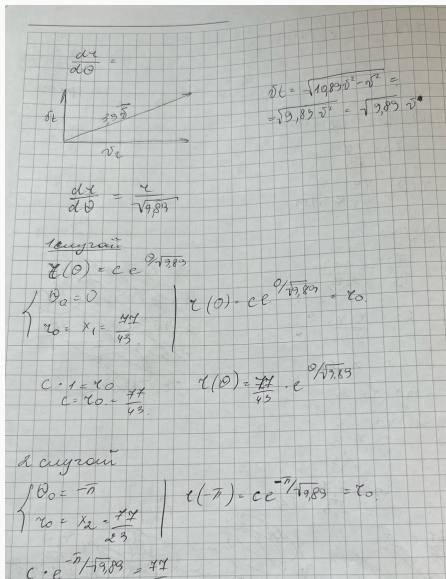 dr/dθ =
v_t
3,3 v̄
v_r
v_t = √(10,89v² - v²) =
= √(9,89v²) = √9,89 v
dr/dθ = r/√9,89
1 случай
r(θ) = c e^(θ/√9,89)
{ θ_a = 0
r_0 = x_1 = 77/43.
r(0) = c e^(0/√9,89) = r_0.
c · 1 = r_0
c = r_0 = 77/43
r(θ) = 77/43 · e^(θ/√9,89)
2 случай
{ θ_0 = -π
r_0 = x_2 = 77/23
r(-π) = c e^(-π/√9,89) = r_0.
c · e^(-π/√9,89) = 77